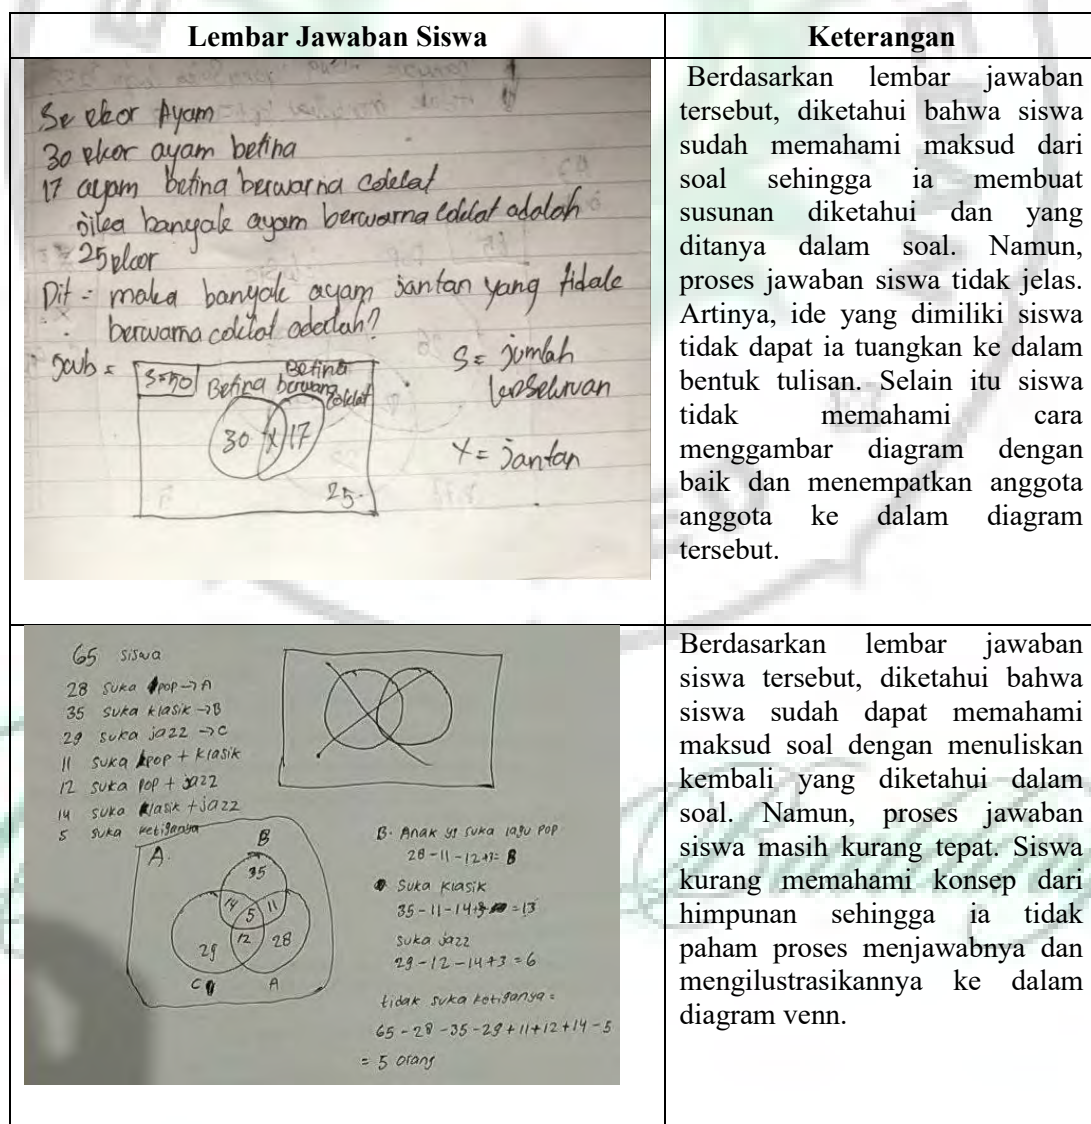 Lembar Jawaban Siswa
Keterangan
Se ekor Ayam
30 ekor ayam betina
17 ayam betina berwarna coklat
jika banyak ayam berwarna coklat adalah
25 ekor
Dit = maka banyak ayam jantan yang tidak
berwarna coklat adalah?
Jawb =
S=50
Betina
Betina
berwarna
coklat
30 X 17
25
S = jumlah
keseluruan
X = jantan
Berdasarkan lembar jawaban
tersebut, diketahui bahwa siswa
sudah memahami maksud dari
soal sehingga ia membuat
susunan diketahui dan yang
ditanya dalam soal. Namun,
proses jawaban siswa tidak jelas.
Artinya, ide yang dimiliki siswa
tidak dapat ia tuangkan ke dalam
bentuk tulisan. Selain itu siswa
tidak memahami cara
menggambar diagram dengan
baik dan menempatkan anggota
anggota ke dalam diagram
tersebut.
65 siswa
28 suka pop → A
35 suka klasik → B
29 suka jazz → C
11 suka pop + klasik
12 suka pop + jazz
14 suka klasik + jazz
5 suka ketiganya
A.
B
35
14 5 11
29 12 28
C A
B. Anak yg suka lagu pop
28-11-12+3= 8
Suka klasik
35-11-14+3 =13
suka jazz
29-12-14+3=6
tidak suka ketiganya =
65-28-35-29+11+12+14-5
= 5 orang
Berdasarkan lembar jawaban
siswa tersebut, diketahui bahwa
siswa sudah dapat memahami
maksud soal dengan menuliskan
kembali yang diketahui dalam
soal. Namun, proses jawaban
siswa masih kurang tepat. Siswa
kurang memahami konsep dari
himpunan sehingga ia tidak
paham proses menjawabnya dan
mengilustrasikannya ke dalam
diagram venn.